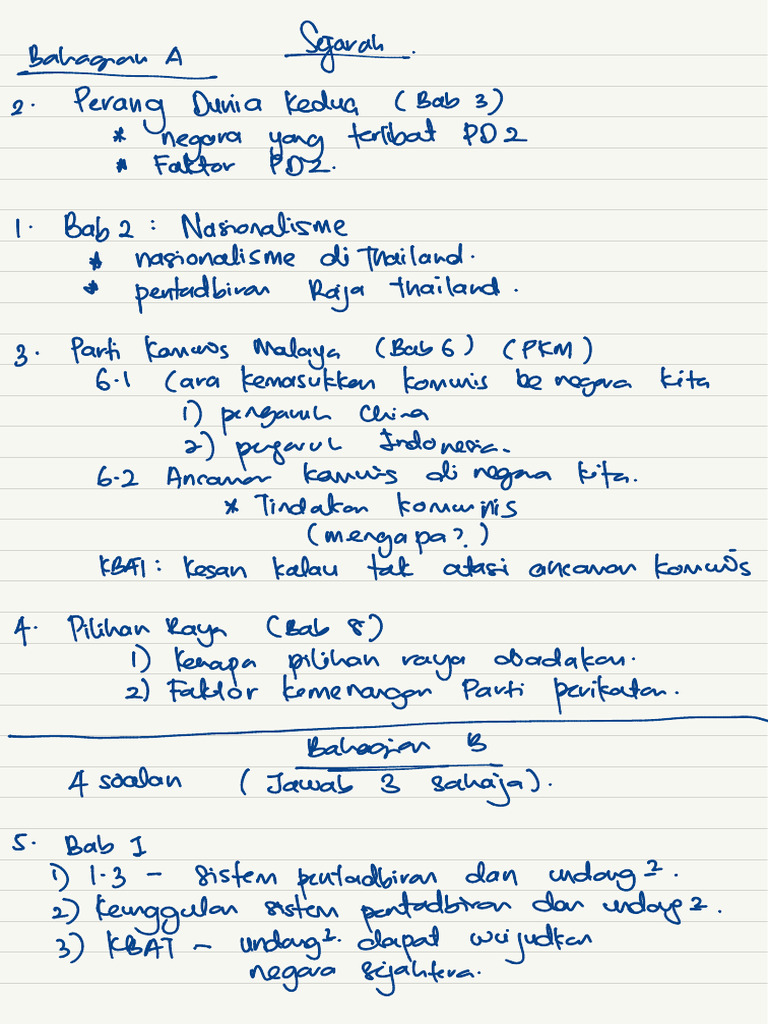 Sejarah.
Bahagian A
2. Perang Dunia Kedua (Bab 3)
* negara yang terlibat PD2
* Faktor PD2.
1. Bab 2 : Nasionalisme
* nasionalisme di Thailand.
* pentadbiran Raja Thailand.
3. Parti Komunis Malaya (Bab 6) (PKM)
6.1 Cara kemasukkan komunis ke negara kita
1) pengaruh China
2) pengaruh Indonesia.
6.2 Ancaman komunis di negara kita.
* Tindakan komunis
(mengapa?)
KBAT : Kesan kalau tak atasi ancaman komunis
4. Pilihan Raya (Bab 8)
1) Kenapa pilihan raya diadakan.
2) Faktor kemenangan Parti perikatan.
Bahagian B
4 soalan (Jawab 3 sahaja).
5. Bab 1
1) 1.3 - sistem pentadbiran dan undang².
2) Keunggulan sistem pentadbiran dan undang2.
3) KBAT - undang². dapat wujudkan
negara sejahtera.